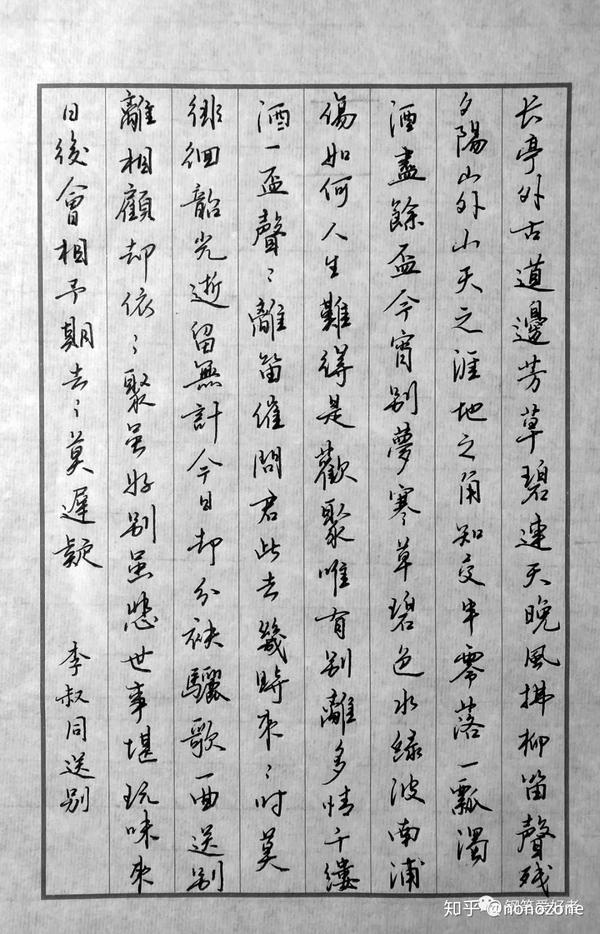 长亭外古道邊芳草碧連天晚風拂柳笛聲残
夕陽山外山天之涯地之角知交半零落一瓢濁
酒盡餘盃今宵别夢寒草碧色水绿波南浦
傷如何人生難得是歡聚唯有别離多情千缕
酒一盃聲〻離笛催問君此去幾時来〻时莫
徘徊韶光逝留無計今日却分袂驪歌一曲送别
離相顧却依〻聚虽好别虽悲世事堪玩味来
日後會相予期去〻莫遲疑 李叔同送别
钢笔爱好者
知乎 @nonozone